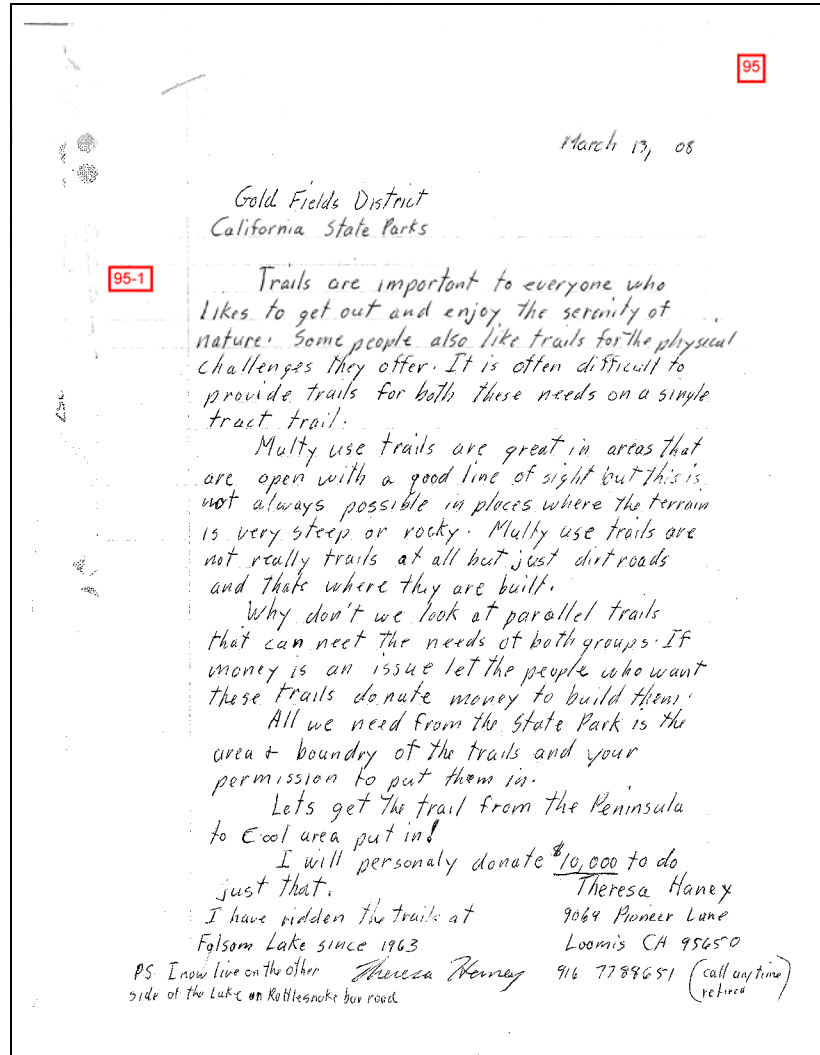 95
March 13, 08
Gold Fields District
California State Parks
95-1
Trails are important to everyone who
likes to get out and enjoy the serenity of
nature. Some people also like trails for the physical
challenges they offer. It is often difficult to
provide trails for both these needs on a single
tract trail.
Multy use trails are great in areas that
are open with a good line of sight but this is
not always possible in places where the terrain
is very steep or rocky. Multy use trails are
not really trails at all but just dirt roads
and thats where they are built.
Why don't we look at parallel trails
that can neet the needs of both groups. If
money is an issue let the people who want
these trails donate money to build them.
All we need from the State Park is the
area + boundry of the trails and your
permission to put them in.
Lets get the trail from the Peninsula
to Cool area put in!
I will personaly donate $10,000 to do
just that.
Theresa Haney
I have ridden the trails at
9069 Pioneer Lane
Folsom Lake since 1963
Loomis CA 95650
PS I now live on the other
side of the Lake on Rattlesnake bar road
Theresa Haney
916 7788651 (call any time
retired)